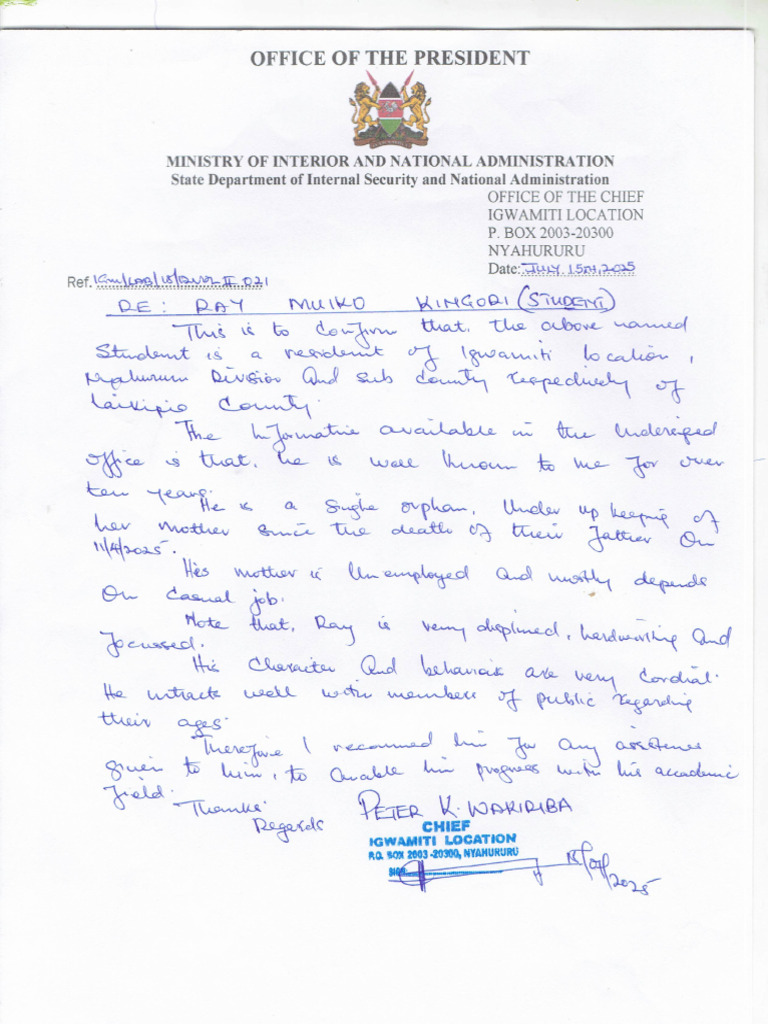 OFFICE OF THE PRESIDENT
MINISTRY OF INTERIOR AND NATIONAL ADMINISTRATION
State Department of Internal Security and National Administration
OFFICE OF THE CHIEF
IGWAMITI LOCATION
P. BOX 2003-20300
NYAHURURU
Date: JULY 15th, 2025
Ref.
RE: RAY MUIKO KINGORI (STUDENT)
This is to confirm that, the above named
Student is a resident of Igwamiti location,
Nyahururu Division and sub county respectively of
Laikipia County.
The Information available in the undersigned
office is that, he is well known to me for over
ten years.
He is a single orphan, under up keeping of
her mother since the death of their father on
11/4/2025.
His mother is unemployed and mostly depends
on casual job.
Note that, Ray is very displined, hardworking and
focussed.
His character and behaviois are very cordial.
He intracts well with members of public regarding
their ages.
Therefore I recommed him for any assistence
given to him, to enable him progress with his accademic
field.
Thanks.
Regards
PETER K. WAKIRIBA
CHIEF
IGWAMITI LOCATION
P.O. BOX 2003-20300, NYAHURURU
2025